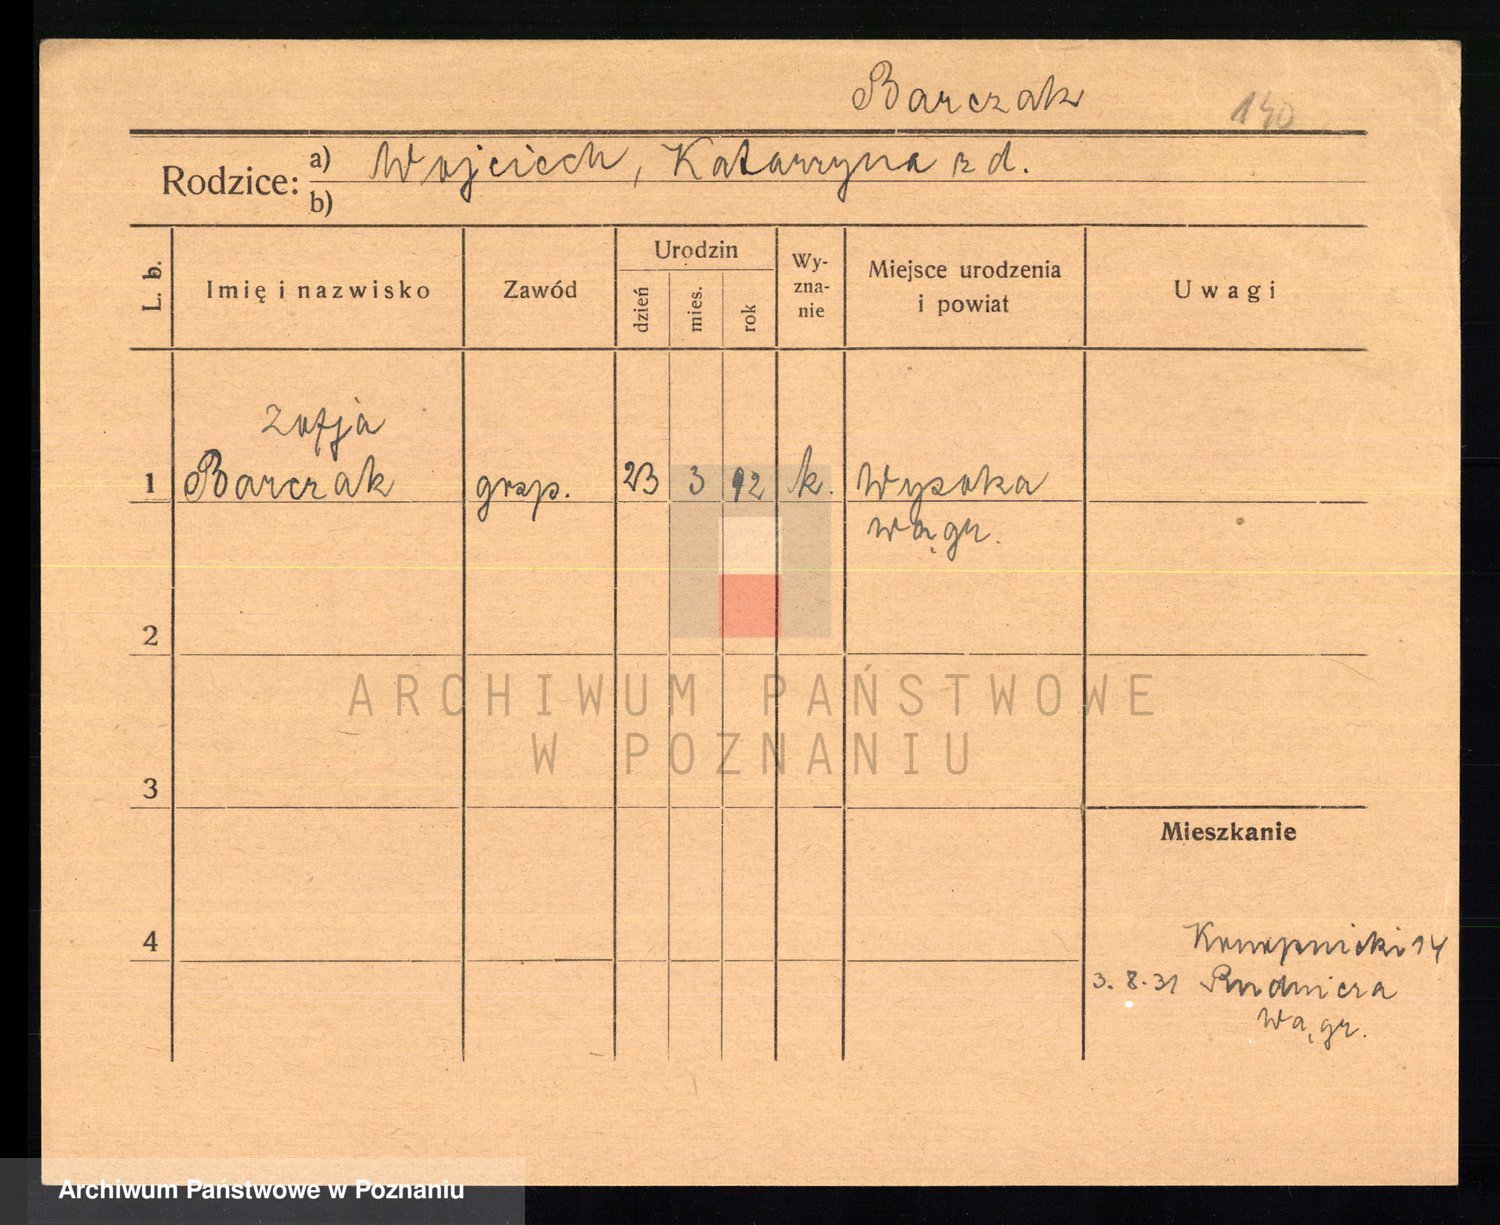 Barczak
140
Rodzice: a) Wojciech, Katarzyna z d.
b)
L. b.
Imię i nazwisko
Zawód
Urodzin
dzień
mies.
rok
Wy-
zna-
nie
Miejsce urodzenia
i powiat
Uwagi
Zofja
1 Barczak gosp. 23 3 92 k. Wysoka
wągr.
2
ARCHIWUM PAŃSTWOWE
W POZNANIU
3
Mieszkanie
4
Konopnicki 14
3. 8. 31 Rudnicza
Wągr.
Archiwum Państwowe w Poznaniu